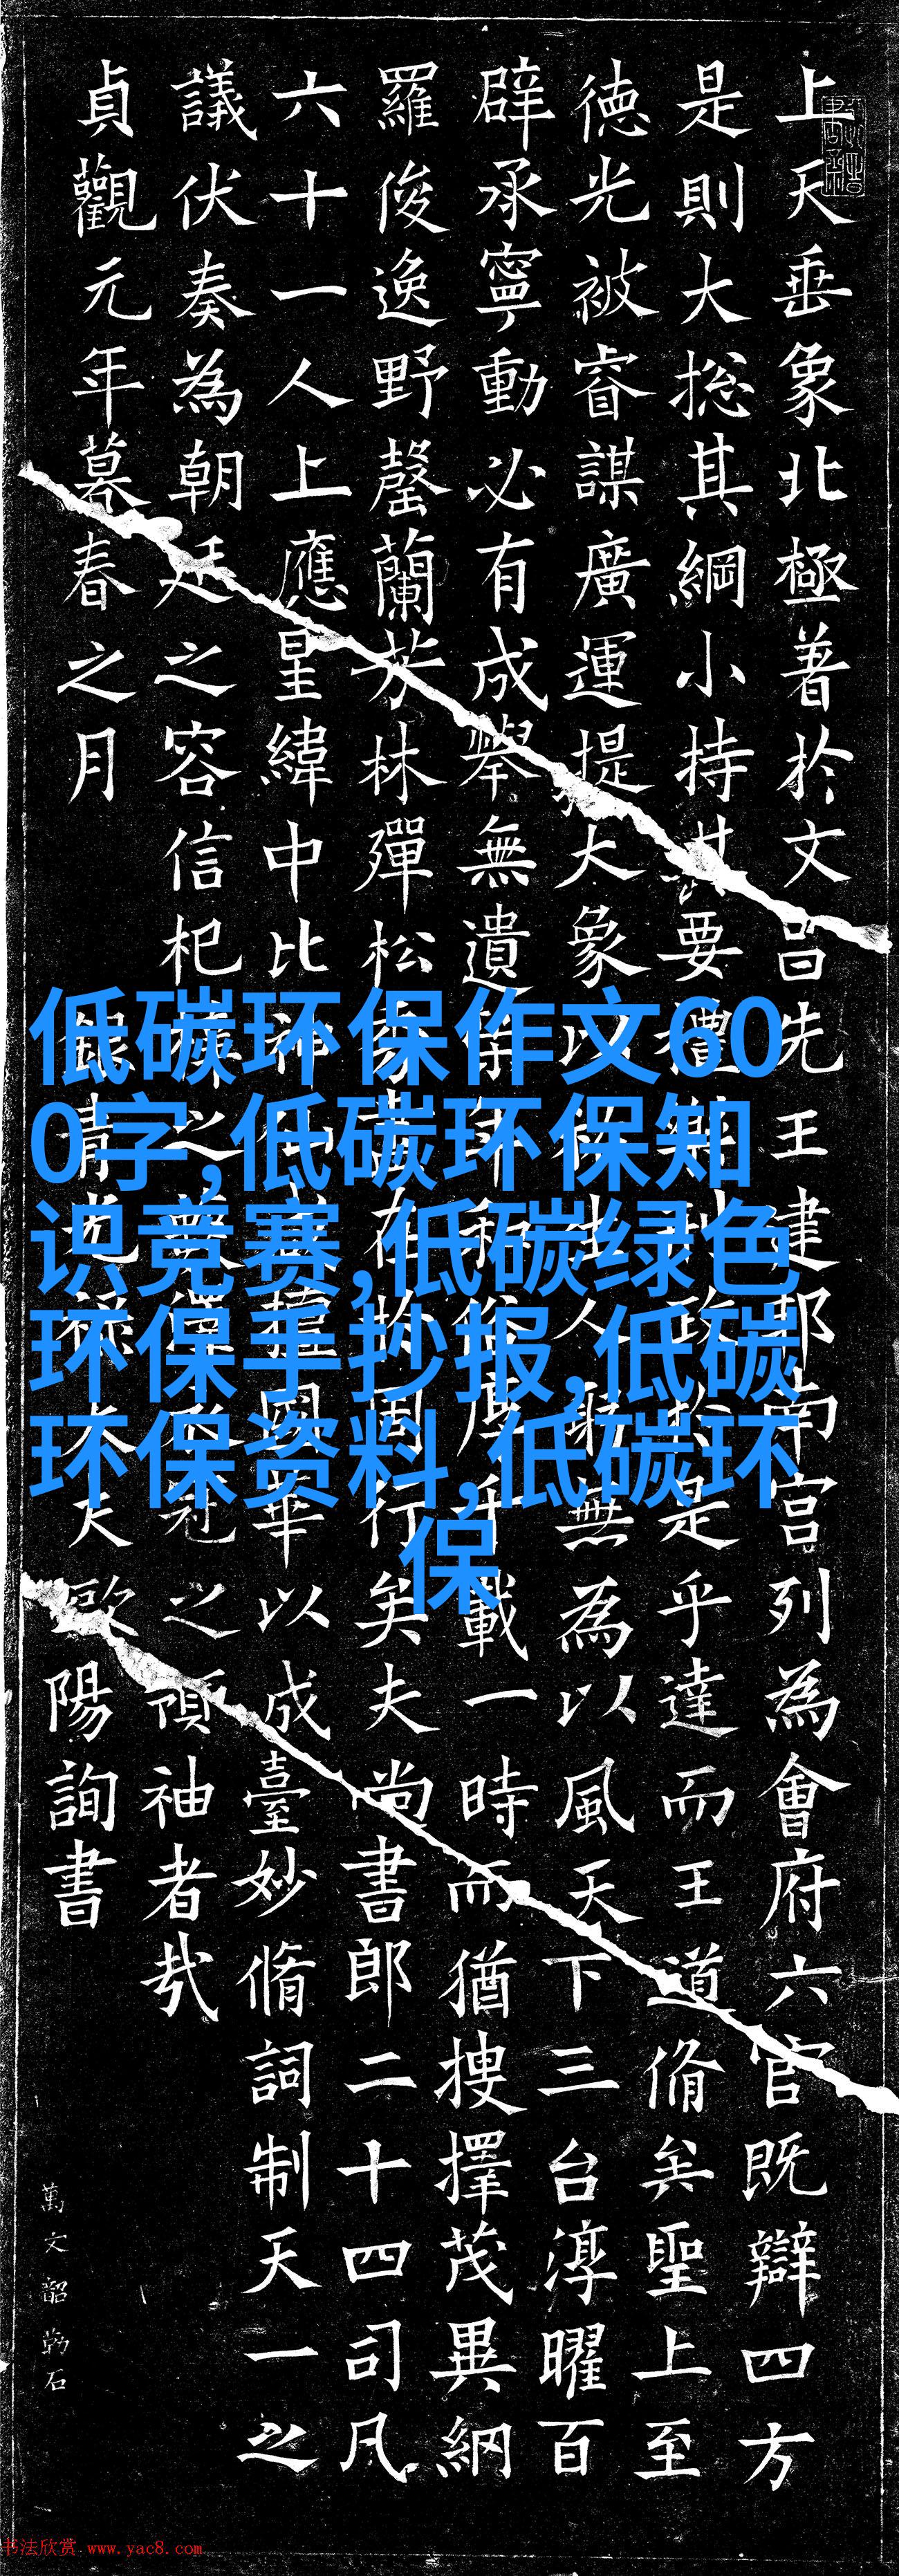 上天垂象北極著於文昌先王建邦南宮列為會府六官既辯四方
是則大捴其綱小持其要禮政於是乎達而王道脩矣聖上至
徳光被睿謀廣運提大象以人躬無為以風天下三台淳曜百
辟承寧動必有成舉無遺和俗厚千載一時而猶搜擇茂異網
羅俊逸野罄蘭芳林殫松有周行矣夫尚書郎二十四司凡
六十一人上應星緯中比神仙國華以成臺妙脩詞制天一之
議伏奏為朝廷之容信杞梓之冠之領袖者哉
貞觀元年暮春之月銀青光祿大夫歐陽詢書
萬文韶勒石
低碳环保作文60
0字,低碳环保知
识竞赛,低碳绿色
环保手抄报,低碳
环保资料,低碳环
保
书法欣赏 www.yac8.com